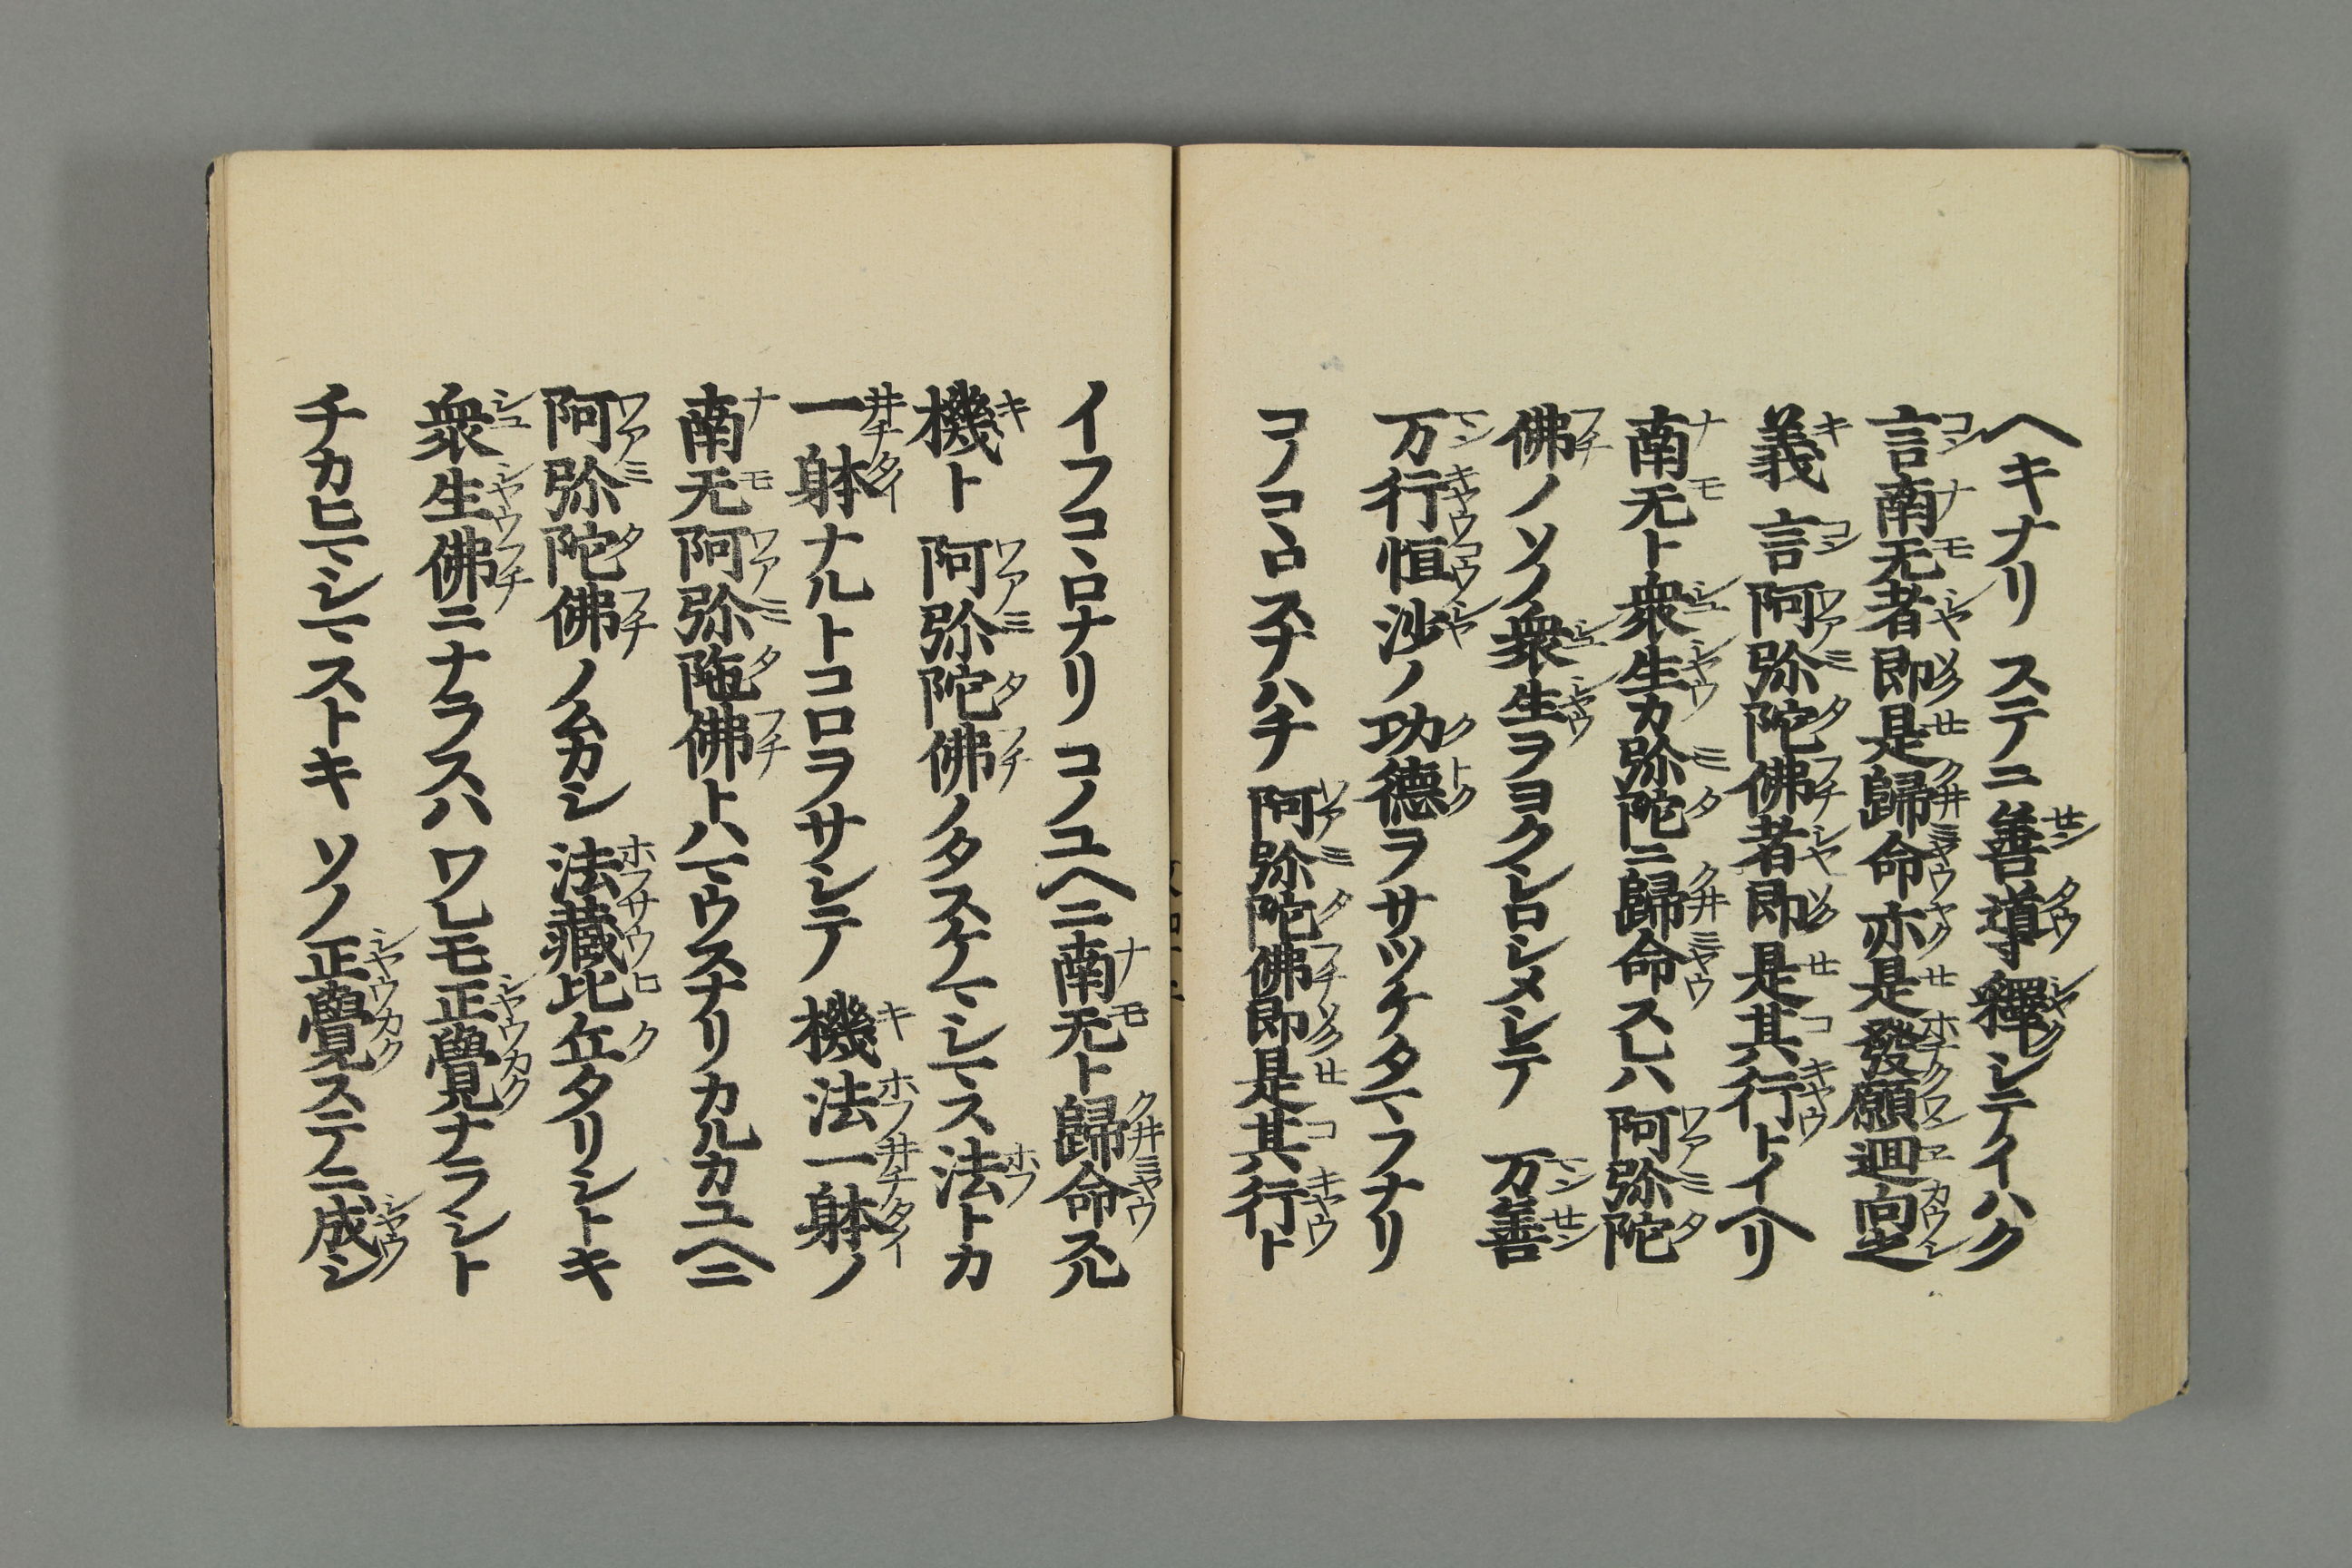 ヘキナリ ステニ善導釋シテイハク
言南无者即是歸命亦是發願迴向之
義 言阿弥陀佛者即是其行トイヘリ
南无ト衆生カ弥陀ニ歸命スレハ阿弥陀
佛ノソノ衆生ヲヨクシロシメシテ 万善
万行恒沙ノ功德ヲサツケタマフナリ
コノコヽロスナハチ阿弥陀佛即是其行ト
イフコヽロナリ コノユヘニ南无ト歸命スル
機ト阿弥陀佛ノタスケマシマス法トカ
一躰ナルトコロヲサシテ 機法一躰ノ
南无阿弥陁佛トハマウスナリカルカユヘニ
阿弥陀佛ノムカシ 法藏比丘タリシトキ
衆生佛ニナラスハ ワレモ正覺ナラシト
チカヒマシマストキ ソノ正覺ステニ成シ